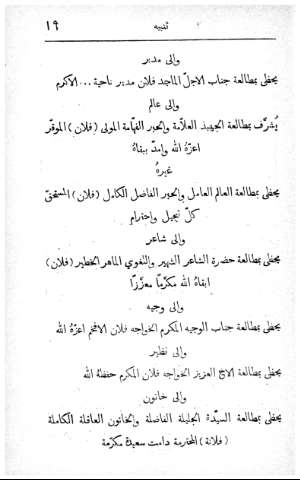 تنبيه
١٩
والى مدير
يحظى بمطالعة جناب الاجلّ الماجد فلان مدير ناحية ... الاكرم
والى عالم
يُشرَّف بمطالعة الجهبذ العلاّمة والحبر الفهّامة المولى (فلان) الموقّر
اعزّهُ الله وامدّ ببقاهُ
غيرهُ
يحظى بمطالعة العالم العامل والحبر الفاضل الكامل (فلان) المستحقّ
كلّ تبجيل واحترام
والى شاعر
يحظى بمطالعة حضرة الشاعر الشهير واللغوي الماهر الخطير (فلان)
ابقاهُ الله مكرّمًا معزّزًا
والى وجيه
يحظى بمطالعة جناب الوجيه المكرم الخواجه فلان الافخم اعزّهُ الله
والى نظير
يحظى بمطالعة الاخ العزيز الخواجه فلان المكرم حفظهُ الله
والى خاتون
يحظى بمطالعة السيّدة الجليلة الفاضلة والخاتون العاقلة الكاملة
(فلانة) المحترمة دامت سعيدة مكرّمة